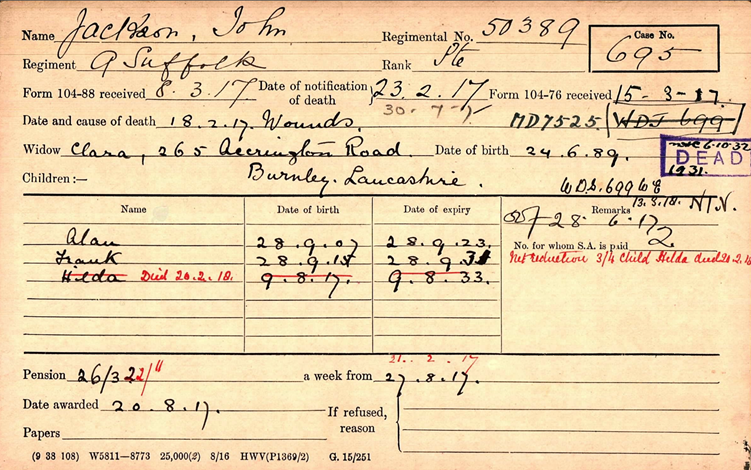 Name Jackson, John Regimental No. 50389 Case No. 695
Regiment 9 Suffolk Rank Pte
Form 104-88 received 8.3.17 Date of notification of death } 23.2.17 Form 104-76 received 15-3-17.
30-7-
Date and cause of death 18.2.17. Wounds. MD7525 WDS 699
Widow Clara, 265 Accrington Road. Date of birth 24.6.89. 6.10.32
DEAD
1931.
Children:— Burnley. Lancashire. WDS. 699 WE
13.3.18. NIN.
Name Date of birth Date of expiry Remarks 28.6.17
No. for whom S.A. is paid 2
Alan 28.9.07 28.9.23.
Frank 28.9.15 28.9.31
Hilda Died 20.2.18. 9.8.17. 9.8.33.
Net reduction 3/4 Child Hilda died 20.2.18
21.2.17
Pension 26/3 22/11 a week from 27.8.17.
Date awarded 20.8.17. If refused, reason
Papers
(9 38 108) W5811—8773 25,000(2) 8/16 HWV(P1369/2) G. 15/251